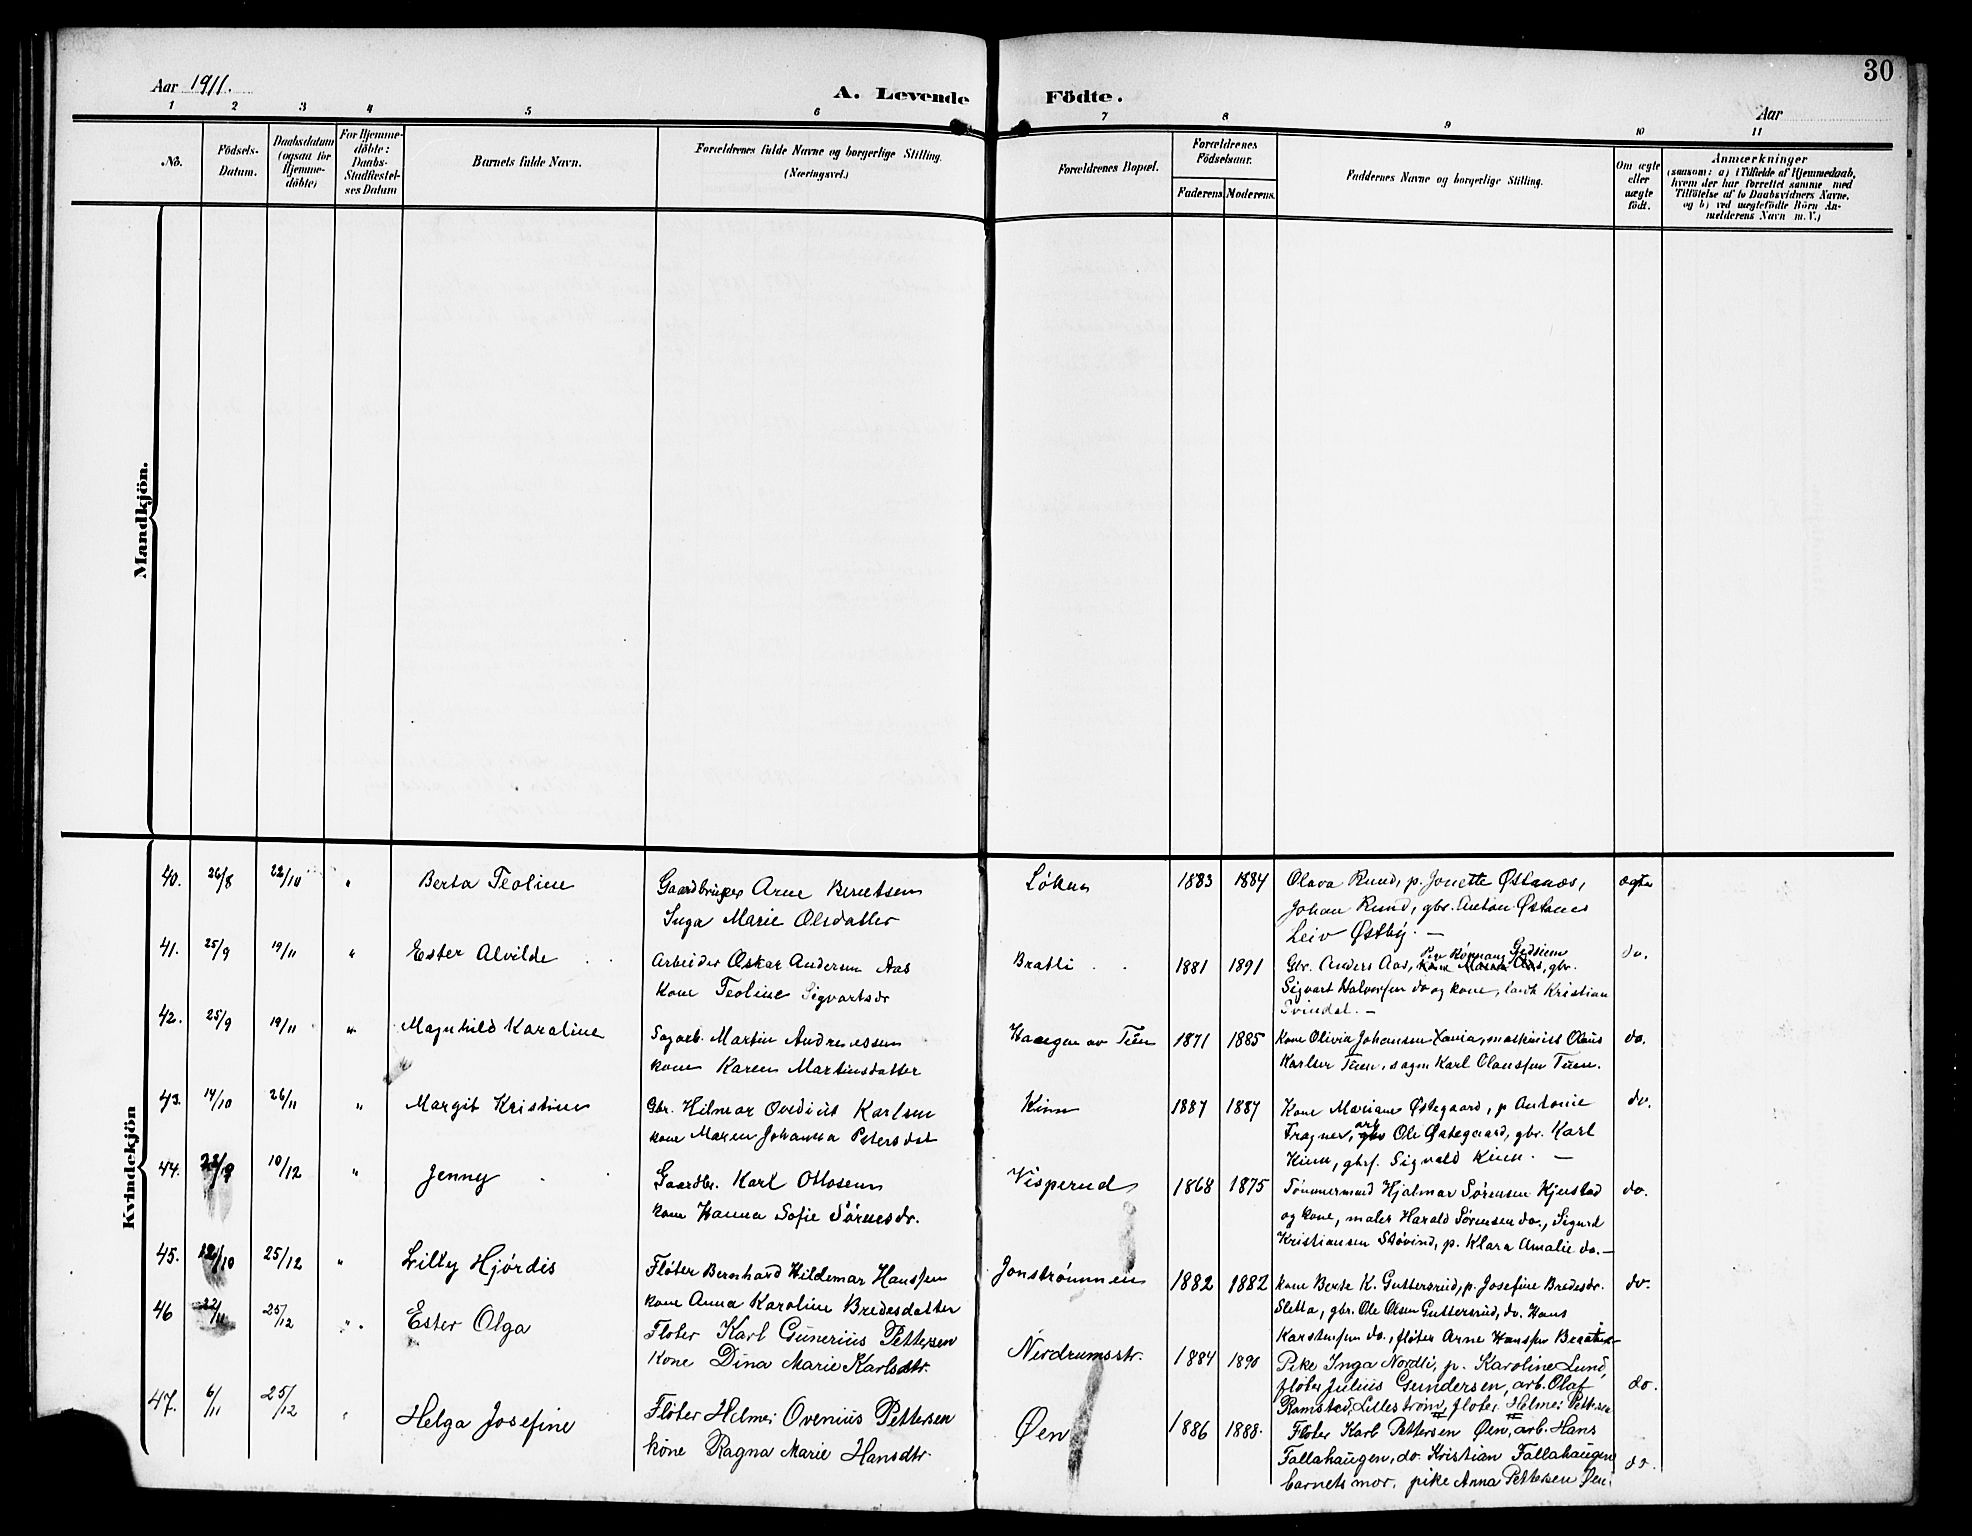 30
Aar 1911.
A. Levende Födte.
Aar
1 2 3 4 5 6 7 8 9 10 11
No.
Födsels-Datum.
Daabsdatum (ogsaa for Hjemme-döbte)
For Hjemme-döbte: Daabs-Stadfæstel-ses Datum
Barnets fulde Navn.
Forældrenes fulde Navne og borgerlige Stilling.
(Næringsvei.)
Forældrenes Bopæl.
Forældrenes Födselsaar.
Faderens Moderens.
Faddernes Navne og borgerlige Stilling.
Om ægte eller uægte födt.
Anmærkninger
(saasom: a) i Tilfælde af Hjemmedaab,
hvem der har forrettet samme med
Tilföielse af to Daabsvidners Navne,
og b) ved uægtefödte Börn An-
melderens Navn m. V.)
Mandkjön.
Kvindekjön
40. 26/8 22/10 " Berta Teoline
Gaardbruger Arne Berntsen
Inga Marie Olsdatter
Løken 1883 1884
Olava Rund, p. Jonette Østanes,
Johan Rund, gbr. Anton Østanes
Leiv Østby. —
ægte
41. 25/9 19/11 " Ester Alvilde
Arbeider Oskar Andersen Aas
kone Teoline Sigvartsdr
Bratli 1881 1891
Gbr. Anders Aas, gbr.
Sigvart Halvorsen do og kone, Kristian
Svindal. —
do.
42. 25/9 19/11 " Magnhild Karoline
Sagarb. Martin Andreassen
kone Karen Martinsdatter
Haugen av Tuen 1871 1885
Kone Olivia Johansen Xania, maskinist Olaus
Karlsen Tuen, sagm Karl Olaussen Tuen.
do.
43. 14/10 26/11 " Margit Kristine
Gbr. Hilmar Ovedius Karlsen
kone Maren Johanna Petersdat
Kinn 1887 1887
Kone Mariane Østegaard, p Antonie
Fragner, arb Ole Østegaard, gbr. Karl
Kinn, gbrs. Sigvald Kinn. —
do.
44. 10/12 " Jenny
Gaardbr. Karl Ottosen
kone Hanna Sofie Sørnesdr.
Visperud 1868 1875
Tømmermand Hjalmar Sørensen Kjerstad
og kone, maler Harald Sørensen do., Sigurd
Kristiansen Støvind, p. Klara Amalie do. —
do.
45. 25/12 " Lilly Hjørdis
Fløter Bernhard Hildemar Hanssen
kone Anna Karoline Bredesdatter
Jonstrømmen 1882 1882
kone Berte K. Guttersrud, p. Josefine Bredesdr.
Sletta, gbr. Ole Olsen Guttersrud, do. Hans
Karstensen do., fløter Arne Hanssen
do.
46 22/11 25/12 " Ester Olga
Fløter Karl Gunerius Pettersen
Kone Dina Marie Karlsdtr.
Nerdrumsstr. 1884 1890
Pike Inga Nordli, p. Karoline Lund,
fløter Julius Gundersen, arb. Olaf
Ramstad, Lillestrøm, fløter Helmer Pettersen
do.
47. 6/11 25/12 " Helga Josefine
Fløter Helmer Ovenius Pettersen
kone Ragna Marie Hansdtr.
Øen 1886 1888.
Fløter Karl Pettersen Øen, arb. Hans
Fallahaugen, do. Kristian Fallahaugen
barnets mor, pike Anna Pettersen Øen.
do.